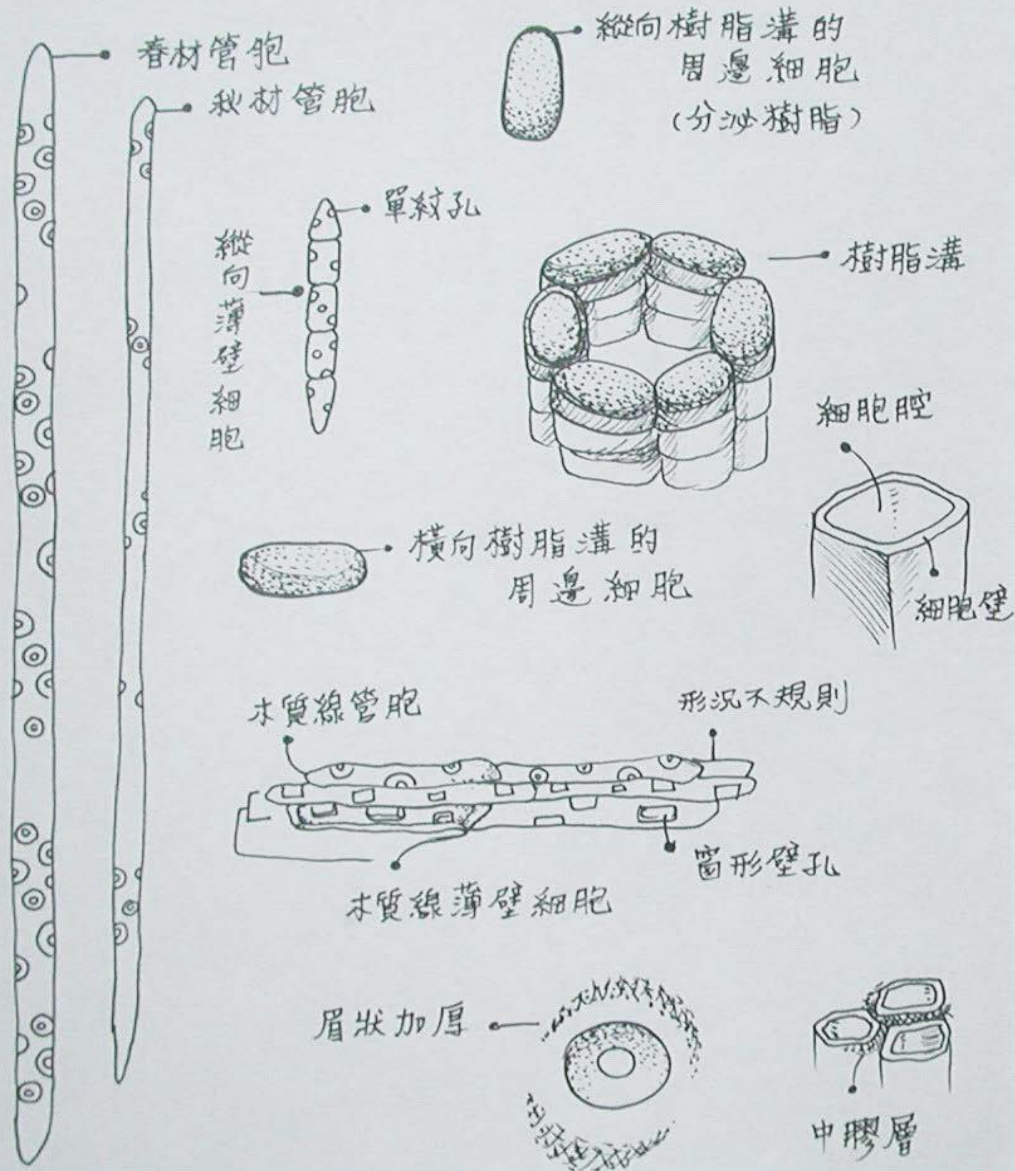 春材管胞
秋材管胞
縱向樹脂溝的
周邊細胞
(分泌樹脂)
單紋孔
縱向薄壁細胞
樹脂溝
細胞腔
細胞壁
橫向樹脂溝的
周邊細胞
木質線管胞
形況不規則
窗形壁孔
木質線薄壁細胞
眉狀加厚
中膠層